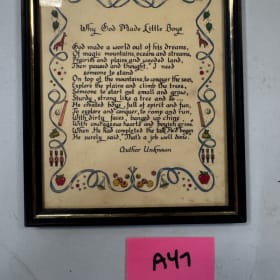 Why God Made Little Boys
God made a world out of his dreams,
Of magic mountains, oceans and streams,
Prairies and plains and wooded land,
Then paused and thought, "I need
someone to stand
On top of the mountains, to conquer the seas,
Explore the plains and climb the trees,
Someone to start out small and grow,
Sturdy, strong like a tree and so...
He created boys, full of spirit and fun,
To explore and conquer, to romp and run,
With dirty faces, banged up chins
With courageous hearts and boyish grins.
When He had completed the task He'd begun,
He surely said, "That's a job well done."
Author Unknown
A47